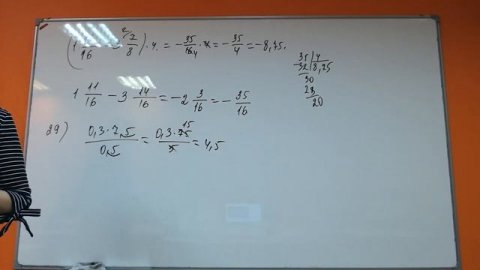 (1 11/16 - 3 7/8) · 4 = - 35/16 · 4 = - 35/4 = - 8,75.
35 | 4
- 32 | 8,75
30
28
20
1 11/16 - 3 14/16 = - 2 3/16 = - 35/16
39) 0,3 · 7,5 / 0,5 = 0,3 · 75 15 / 5 = 4,5